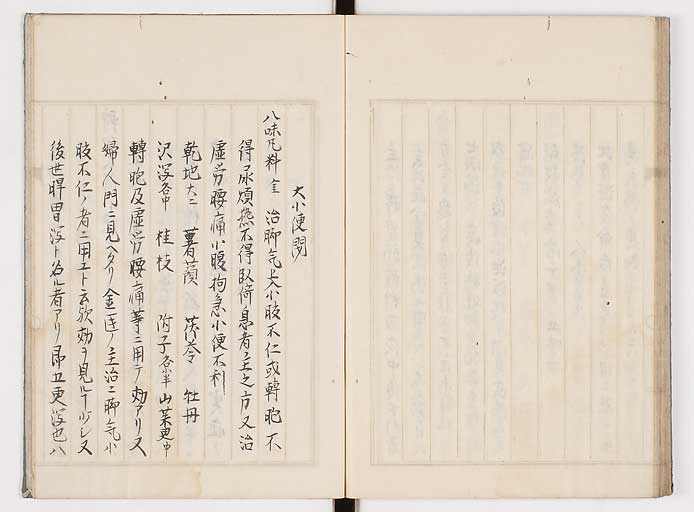 大小便閉
八味丸料 金 治脚気上入小腹不仁或轉胞不
得尿煩熱不得臥倚息者主之方又治
虚労腰痛小腹拘急小便不利
乾地大二 薯蕷 茯苓 牡丹
沢瀉各中 桂枝 附子各半 山茱萸中
轉胞及虚労腰痛等ニ用テ効アリ又
婦人門ニ見ヘタリ金匱ノ主治ニ脚気小
腹不仁ノ者ニ用ユト云𪜈効ヲ見ル┐少シ又
後世脾胃瀉ト名ル者アリ即五更瀉也八